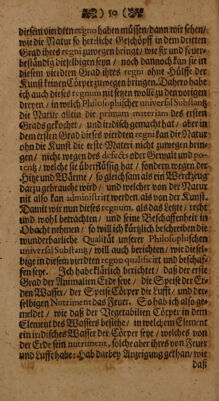 ) 50 (
diesem vierdten regno haben müssen/dann wir sehen/
wie die Natur so herzliche Geschöpff in dem dritten
Grad ihres regni zuwegen bringt; wie fix und feuer-
beständig dieselbigen seyn / noch dannoch kan sie in
diesem vierdten Grad ihres regni ohne Hülffe der
Kunst keinen Cörper zuwegen bringen. Dahero habe
ich auch dieses regnum mit seyen wollē zu den vorigen
dreyen / in welch Philosophischer universal Substantz
die Natur allein die primam materiam des ersten
Grads gekocht / und irrdisch gemacht hat / aber in
dem ersten Grad dieses vierdten regni kan die Natur
ohn die Kunst die erste Materi nicht zuwegen brin-
gen / nicht wegen des defects oder Gewalt und po-
tentz / welche sie überflüssig hat / sondern wegen der
Hitz und Wärme / so gleichsam als ein Werckzeug
darzu gebraucht wird / und welcher von der Natur
nit also kan administrirt werden als von der Kunst.
Damit wir nun dieses regnum, als das letzte / recht
und wohl betrachten / und seine Beschaffenheit in
Obacht nehmen / so will ich kürtzlich beschreiben die
wunderbarliche Qualität unserer Philosophischen
universal Substantz / will auch berichten / wie diesel-
bige in diesem vierdten regno qualificirt und beschaf-
fen seye. Ich habe klärlich berichtet / daß der erste
Grad der Animalien Erde seye / die Speise der Er-
den Wasser / der Speise Cörper die Lufft / und der-
selbigen Nutriment das Feuer. So hab ich also ge-
meldet / wie daß der Vegetabilien Cörper in dem
Element des Wassers bestehe / in welchem Element
ein irrdisches Wasser der Cörper seye / welches von
der Erde sein nutriment, solche aber ihres von Feuer
und Luffte habe: Hab darbey Anzeigung gethan / wie
daß